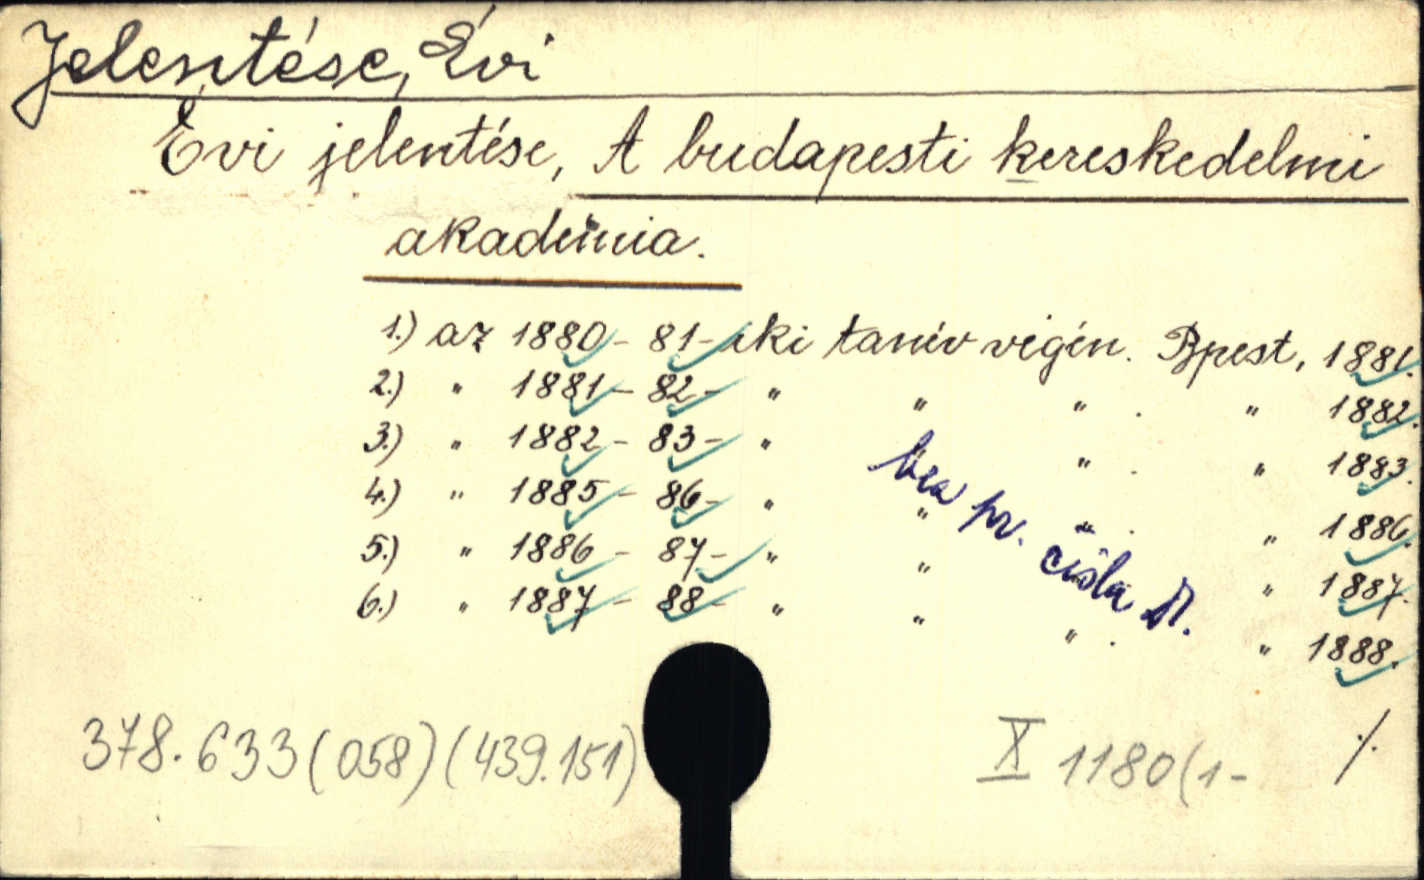 Jelentése, Évi
Évi jelentése, A budapesti kereskedelmi
akadémia.
1.) az 1880 - 81 - iki tanév végén. Bpest, 1881.
2.) " 1881 - 82 - " " " . " 1882.
3.) " 1882 - 83 - " " . " 1883.
4.) " 1885 - 86 - " " " . " 1886.
5.) " 1886 - 87 - " " " 1887.
6.) " 1887 - 88 - " " " . " 1888.
bez pr. čísla
378.633(058)(439.151)
X 1180(1-
./.